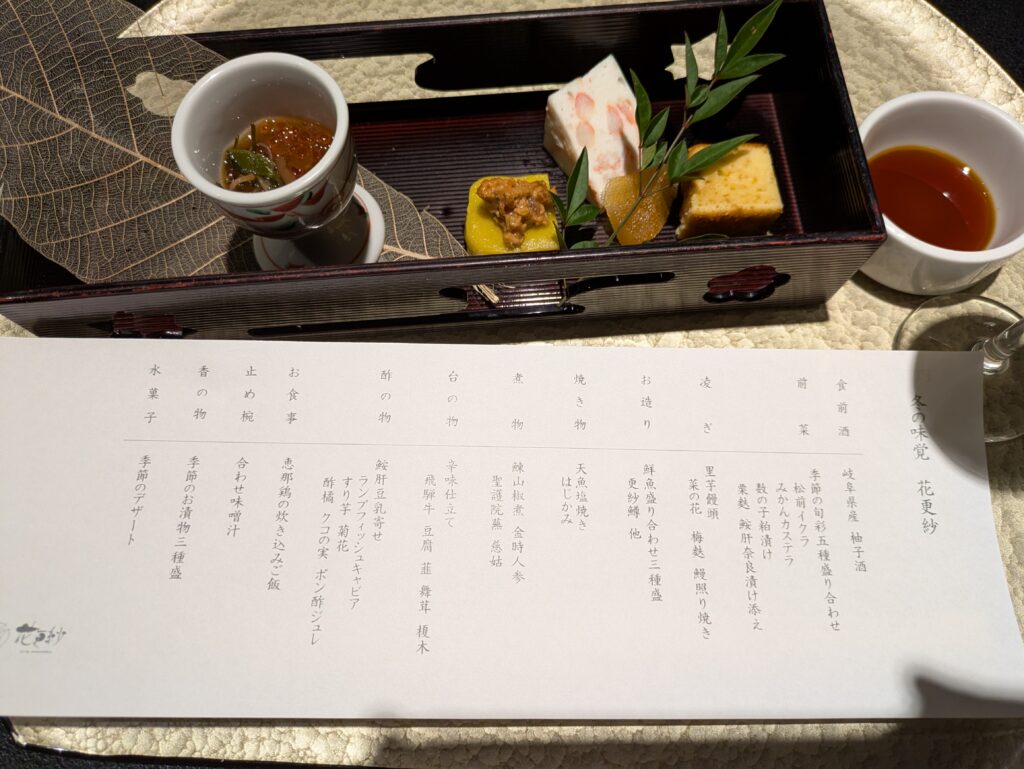 冬の味覚　花更紗
食前酒
岐阜県産 柚子酒
前菜
季節の旬彩五種盛り合わせ
松前イクラ
みかんカステラ
数の子粕漬け
粟麩 鮟肝奈良漬け添え
凌ぎ
里芋饅頭
菜の花 梅麩 鰻照り焼き
お造り
鮮魚盛り合わせ三種盛
更紗鱒 他
焼き物
天魚塩焼き
はじかみ
煮物
鰊山椒煮 金時人参
聖護院蕪 慈姑
台の物
辛味仕立て
飛騨牛 豆腐 韮 舞茸 榎木
酢の物
鮟肝豆乳寄せ
ランプフィッシュキャビア
すり芋 菊花
酢橘 クコの実 ポン酢ジュレ
お食事
恵那鶏の炊き込みご飯
止め椀
合わせ味噌汁
香の物
季節のお漬物三種盛
水菓子
季節のデザート
花更紗